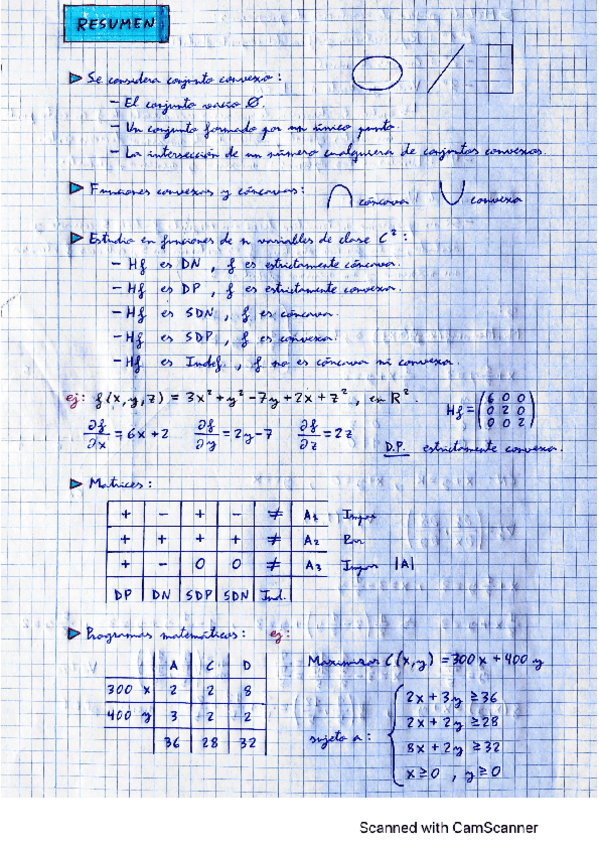 RESUMEN
Se considera conjunto convexo:
- El conjunto vacío Ø.
- Un conjunto formado por un único punto.
- La intersección de un número cualquiera de conjuntos convexos.
Funciones convexas y cóncavas: cóncava convexa
Estudio en funciones de n variables de clase C²:
- Hf es DN, f es estrictamente cóncava.
- Hf es DP, f es estrictamente convexa.
- Hf es SDN, f es cóncava.
- Hf es SDP, f es convexa.
- Hf es Indef., f no es cóncava ni convexa.
ej: f(x,y,z) = 3x² + y² - 7y + 2x + z², en R².
Hf = (6 0 0
0 2 0
0 0 2)
∂f/∂x = 6x + 2 ∂f/∂y = 2y - 7 ∂f/∂z = 2z
D.P. estrictamente convexa.
Matrices:
+ - + - ≠ A₁ Impar
+ + + + ≠ A₂ Par
+ - 0 0 ≠ A₃ Impar |A|
DP DN SDP SDN Ind.
Programas matemáticos: ej:
A C D
300 x 2 2 8
400 y 3 2 2
36 28 32
Maximizar C(x,y) = 300x + 400y
sujeto a:
2x + 3y ≥ 36
2x + 2y ≥ 28
8x + 2y ≥ 32
x ≥ 0, y ≥ 0
Scanned with CamScanner